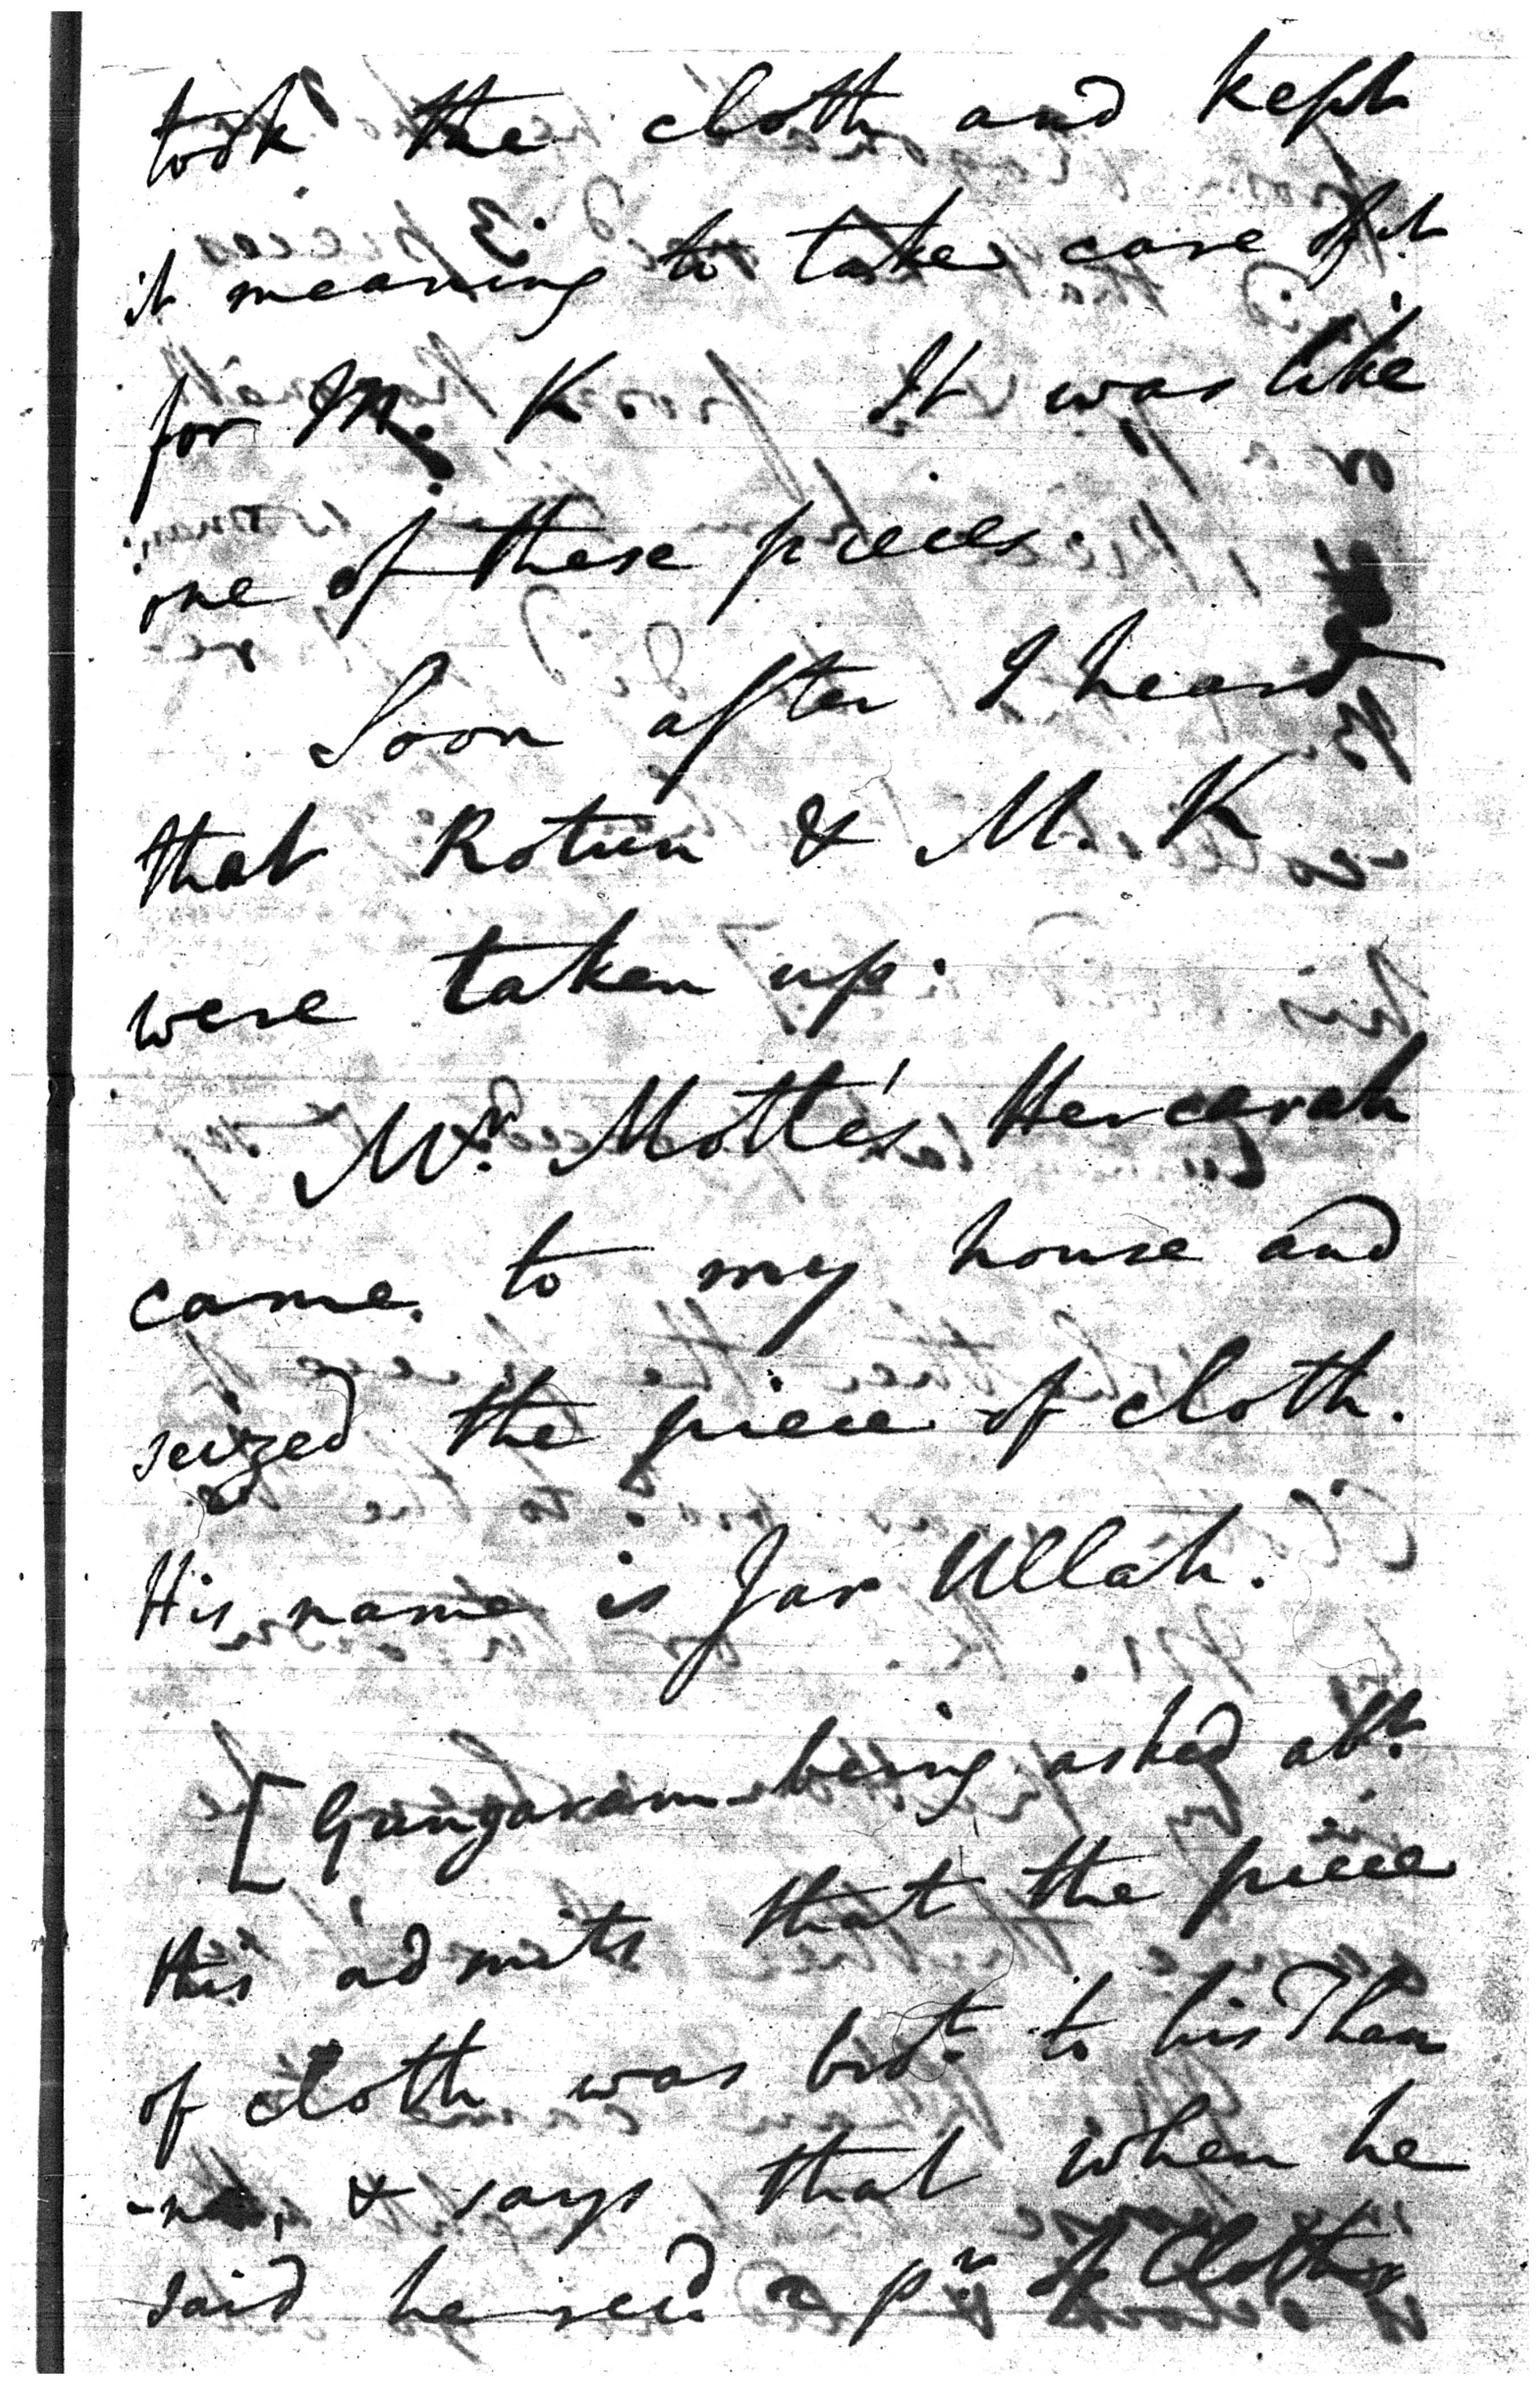 took the cloth and kept
it meaning to take care of it
for M. K It was like
one of these pieces.
Soon after I heard
that Rotun & M. K
were taken up.
Mr. Motte's Hercarah
came to my house and
seized the piece of cloth.
His name is Jar Ullah.
[Gungaram being asked abt.
this admits that the piece
of cloth was brot. to his Than
-na, & says that when he
said he recd. a pr. of Cloths